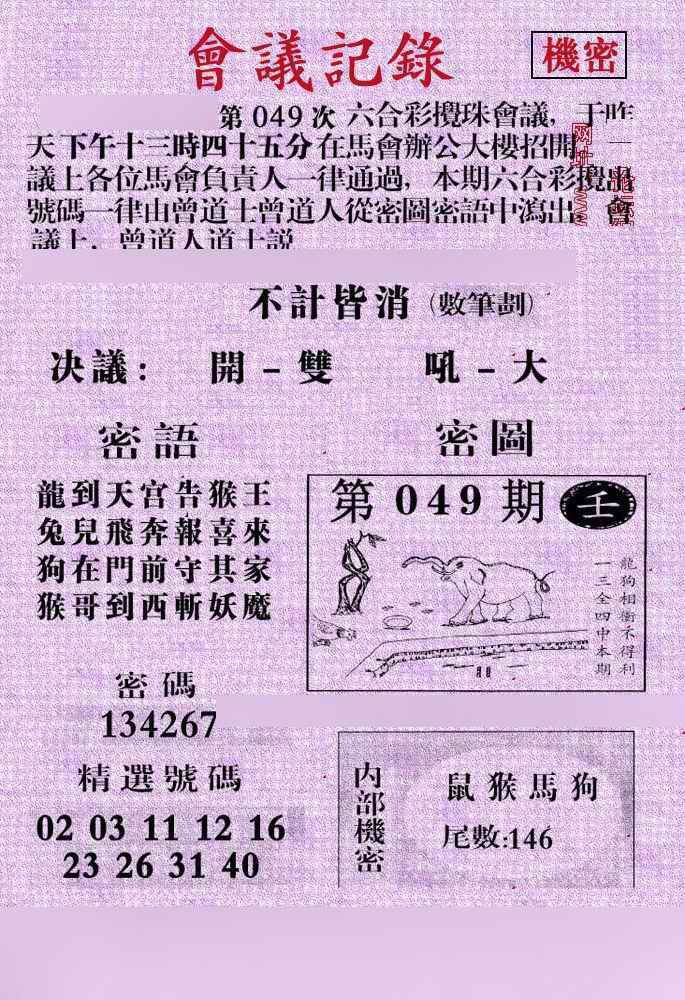 會議記錄
機密
第 049 次 六合彩攪珠會議，于昨
天下午十三時四十五分在馬會辦公大樓招開 一
議上各位馬會負責人一律通過，本期六合彩攪出
號碼一律由曾道士曾道人從密圖密語中瀉出。會
議上，曾道人道士説
网址 www
不計皆消（數筆劃）
决議： 開－雙 吼－大
密語
龍到天宫告猴王
兔兒飛奔報喜來
狗在門前守其家
猴哥到西斬妖魔
密圖
第 049 期 壬
龍狗相衝不得利
一三全四中本期
密碼
134267
精選號碼
02 03 11 12 16
23 26 31 40
内部機密
鼠猴馬狗
尾數:146